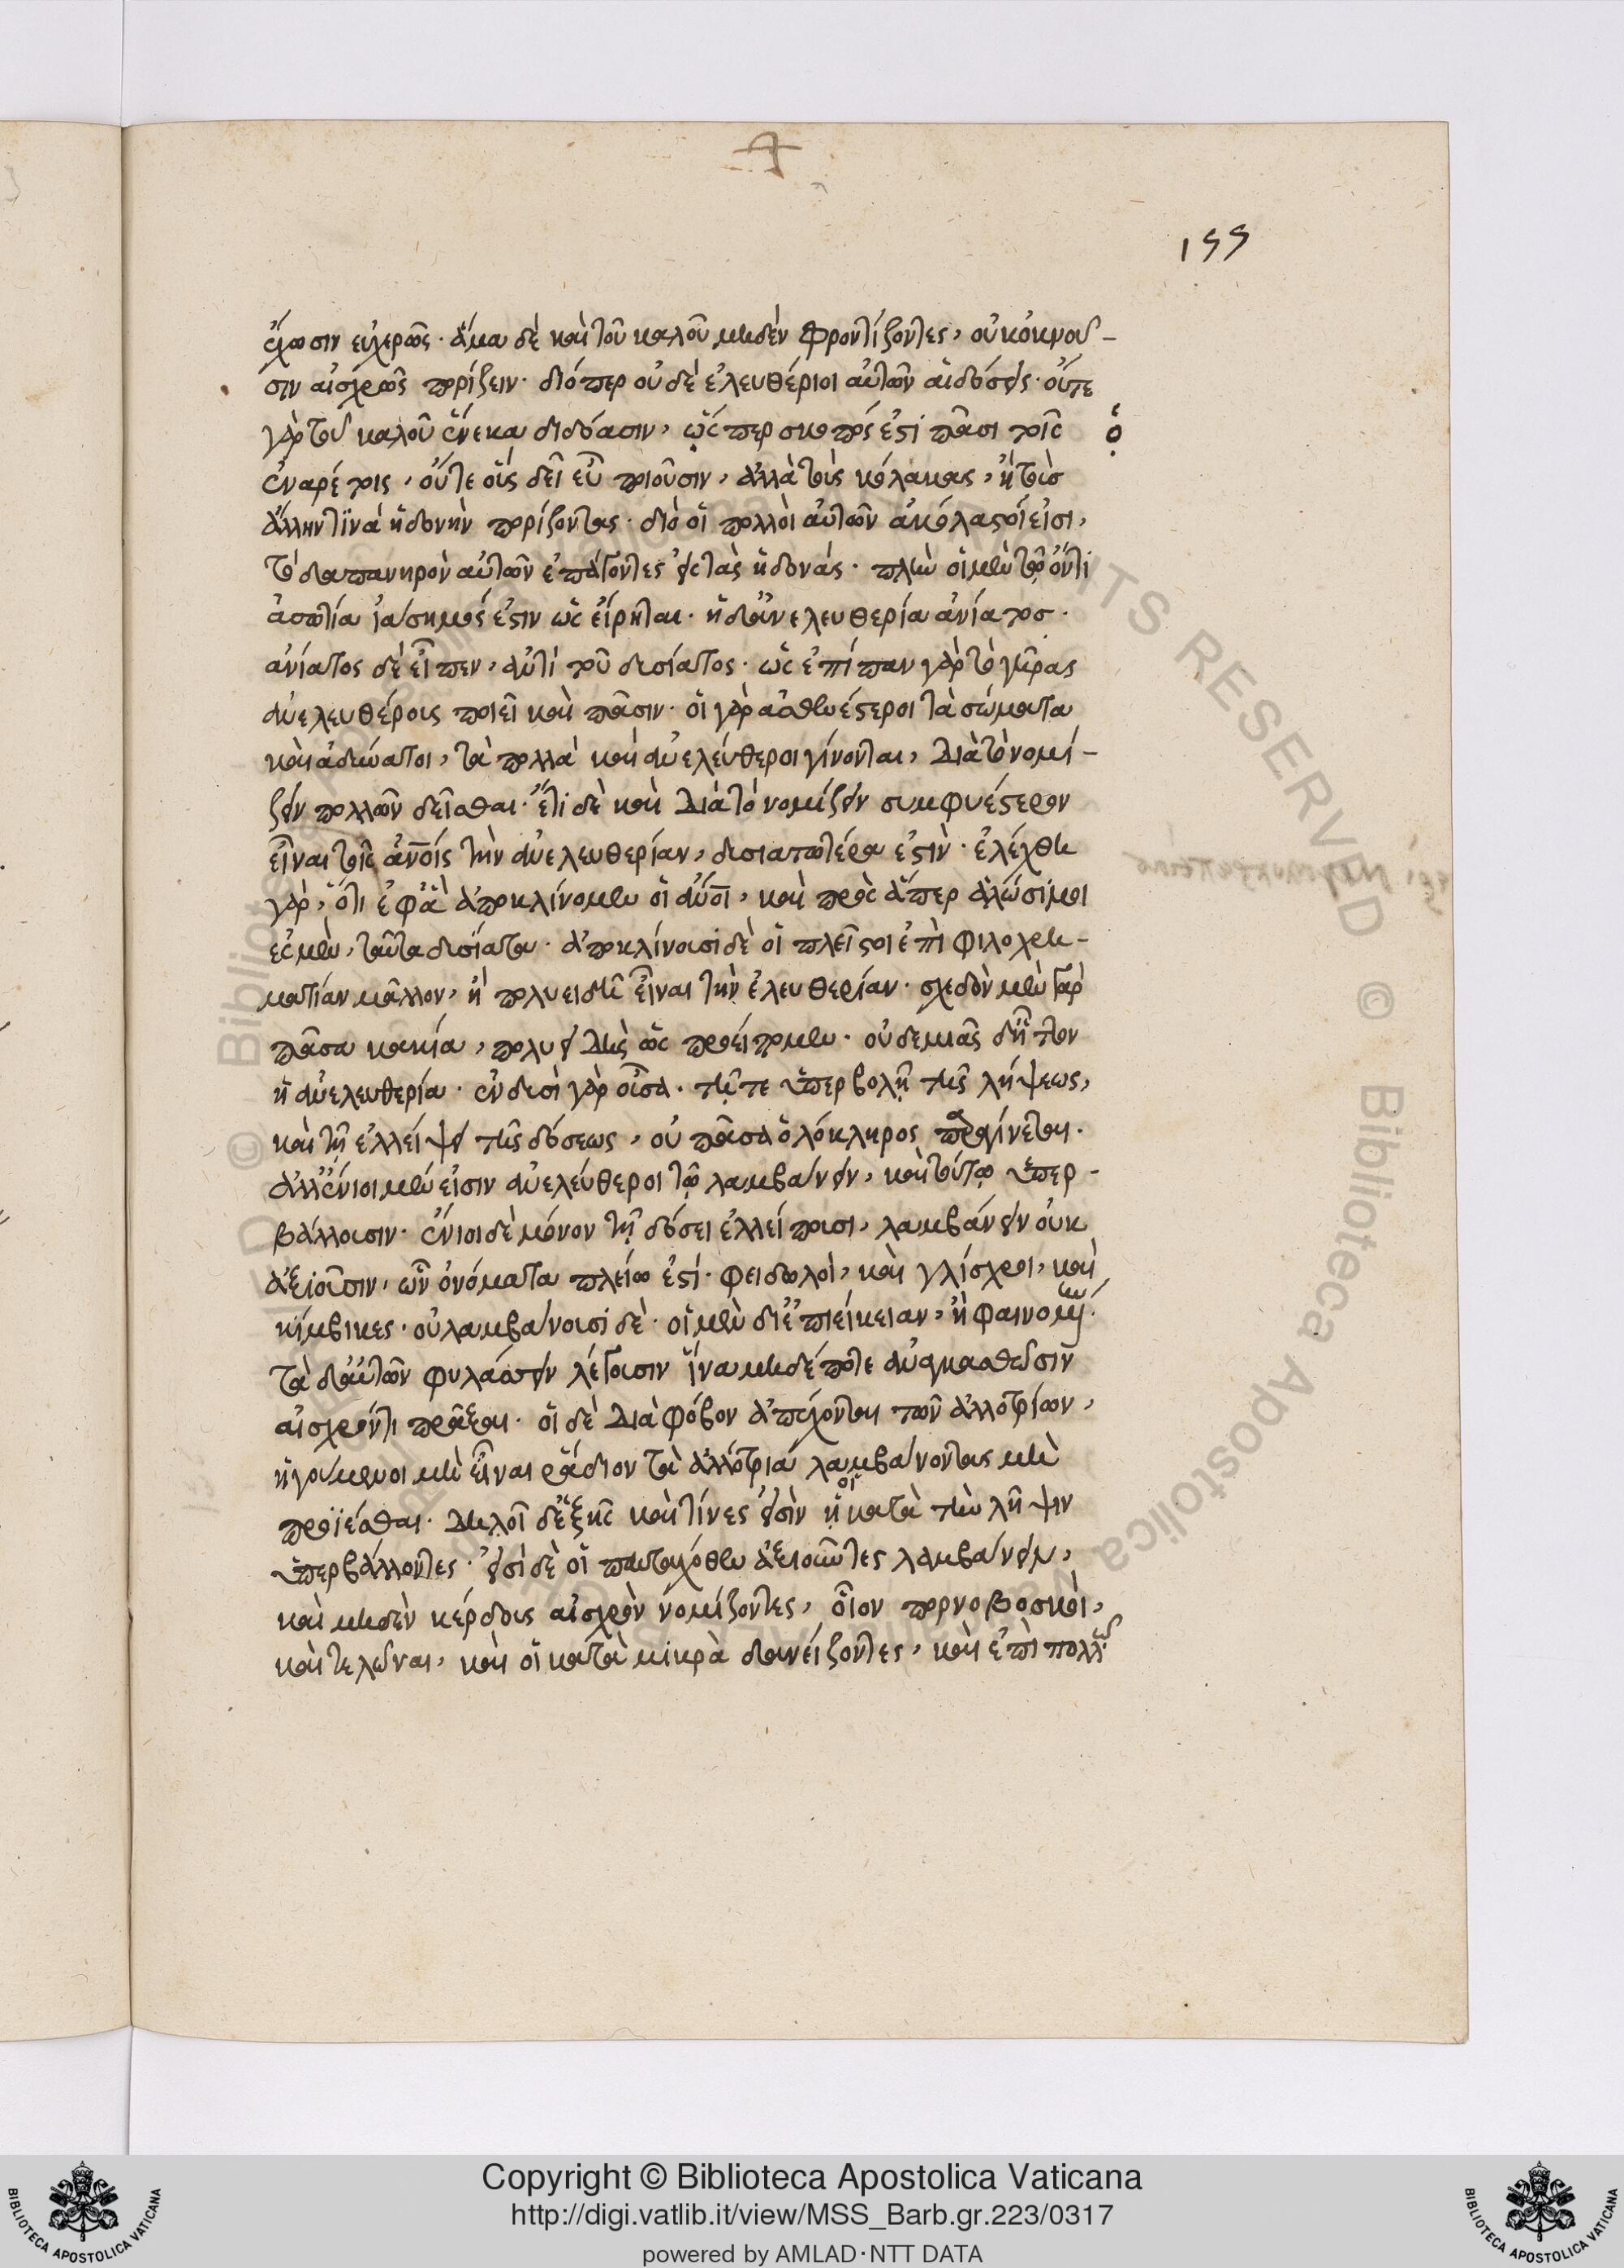 155
ἔχωσιν εὐχερῶς· ἅμα δὲ καὶ τοῦ καλοῦ μηδὲν φροντίζοντες, οὐκ ὀκνοῦ-
σιν αἰσχρῶς πορίζειν· διόπερ οὐδὲ ἐλευθέριοι αὐτῶν αἱ δόσεις· οὔτε
γὰρ τοῦ καλοῦ ἕνεκα διδόασιν, ὥσπερ σκοπός ἐστι πᾶσι τοῖς
ἐναρέτοις, οὔτε οἷς δεῖ εὖ ποιοῦσιν, ἀλλὰ τοὺς κόλακας, ἢ τοὺσ
ἄλλην τινὰ ἡδονὴν πορίζοντας· διὸ οἱ πολλοὶ αὐτῶν ἀκόλαστοί εἰσι,
τὸ δαπανηρὸν αὐτῶν ἐπάγοντες εἰς τὰς ἡδονάς· πλὴν οἱ μὲν τῷ ὄντι
ἀσωτία ἰάσημός ἐστιν ὡς εἴρηται· ἡ δ' ἀνελευθερία ἀνίατοσ·
ἀνίατος δὲ εἶπεν, ἀντὶ τοῦ δυσίατος· ὡς ἐπίπαν γὰρ τὸ γῆρας
ἀνελευθέρους ποιεῖ καὶ πᾶσιν· οἱ γὰρ ἀσθενέστεροι τὰ σώματα
καὶ ἀδύνατοι, τὰ πολλὰ καὶ ἀνελεύθεροι γίνονται, διὰ τὸ νομί-
ζειν πολλῶν δεῖσθαι· ἔτι δὲ καὶ διὰ τὸ νομίζειν συμφυέστερον
εἶναι τοῖς ἀνοις τὴν ἀνελευθερίαν, δυσιατωτέρα ἐστὶν· ἐλέχθη
γὰρ, ὅτι ἐφ' ἃ ἀποκλίνομεν οἱ ἄνοι, καὶ πρὸς ἅπερ ἁλώσιμοι
ἐσμὲν, ταῦτα δυσίατα· ἀποκλίνουσι δὲ οἱ πλεῖστοι ἐπὶ φιλοχρη-
ματίαν μᾶλλον, ἢ πολυειδῆ εἶναι τὴν ἐλευθερίαν· σχεδὸν μὲν γὰρ
πᾶσα κακία, πολυειδὴς ὡς προείπομεν· οὐδεμιᾶς δ' ἧττον
ἡ ἀνελευθερία· ἐν δυσὶ γὰρ οὖσα· τῇ τε ὑπερβολῇ τῆς λήψεως,
καὶ τῇ ἐλλείψει τῆς δόσεως, οὐ πᾶσα ὁλόκληρος παραγίνεται·
ἀλλ' ἔνιοι μέν εἰσιν ἀνελεύθεροι τῷ λαμβάνειν, καὶ τούτῳ ὑπερ-
βάλλουσιν· ἔνιοι δὲ μόνον τῇ δόσει ἐλλείπουσι, λαμβάνειν οὐκ
ἀξιοῦσιν, ὧν ὀνόματα πλείω ἐστί· φειδωλοὶ, καὶ γλίσχροι, καὶ
κίμβικες· οὐ λαμβάνουσι δὲ· οἱ μὲν δι' ἐπιείκειαν, ἢ φαινομένην·
τὰ δ' αὑτῶν φυλάσσειν λέγουσιν ἵνα μηδέποτε ἀναγκασθῶσιν
αἰσχρόν τι πρᾶξαι· οἱ δὲ διὰ φόβον ἀπέχονται τῶν ἀλλοτρίων,
ἡγούμενοι μὴ εἶναι ῥάδιον τὰ ἀλλότρια λαμβάνοντας μὴ
προΐεσθαι· δηλοῖ δ' ἑξῆς καὶ τίνες εἰσὶν οἱ κατὰ τὴν λῆψιν
ὑπερβάλλοντες· εἰσὶ δὲ οἱ πανταχόθεν ἀξιοῦντες λαμβάνειν,
καὶ μηδὲν κέρδους αἰσχρὸν νομίζοντες, οἷον πορνοβοσκοὶ,
καὶ τελῶναι, καὶ οἱ κατὰ μικρὰ δανείζοντες, καὶ ἐπὶ πολλῷ·
Copyright © Biblioteca Apostolica Vaticana
http://digi.vatlib.it/view/MSS_Barb.gr.223/0317
powered by AMLAD·NTT DATA